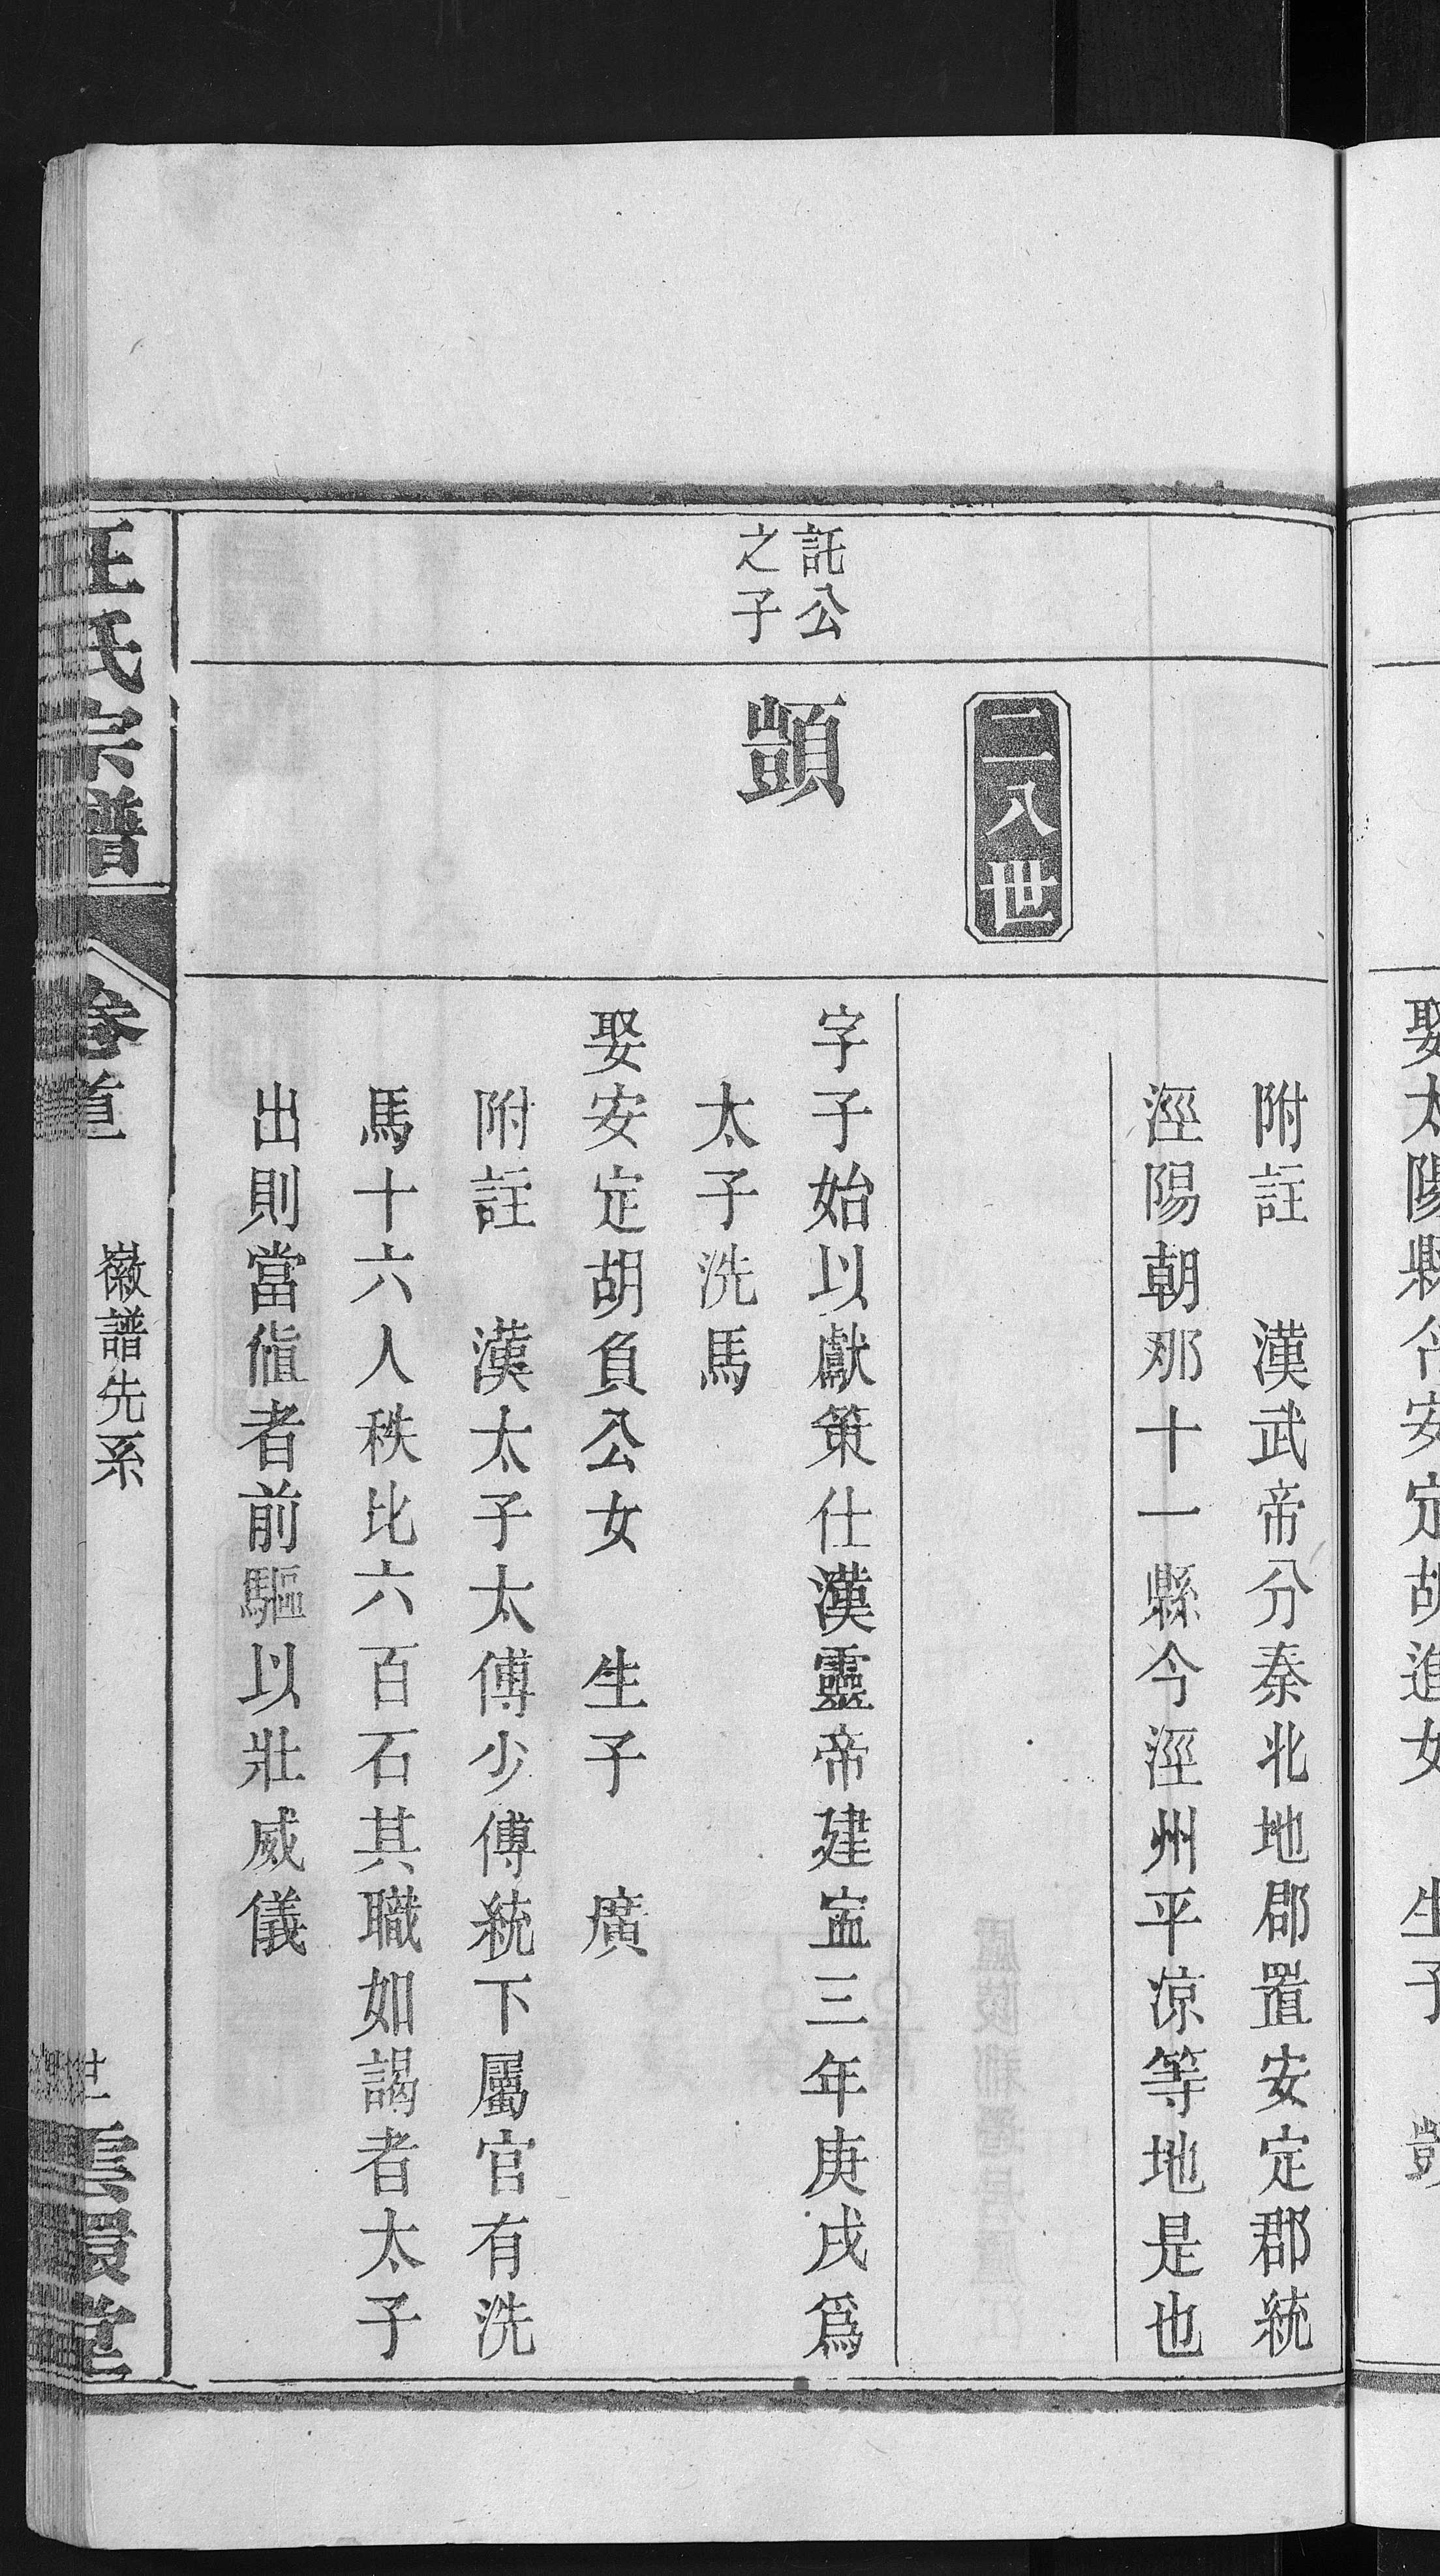 娶太陽縣令安定胡進女　生子
附註　漢武帝分秦北地郡置安定郡統
涇陽朝那十一縣今涇州平涼等地是也
二八世
託公
之子
顗
字子始以獻策仕漢靈帝建寍三年庚戌爲
太子洗馬
娶安定胡負公女　生子　廣
附註　漢太子太傅少傅統下屬官有洗
馬十六人秩比六百石其職如謁者太子
出則當值者前驅以壯威儀
汪氏宗譜
卷首
徽譜先系
世
雲環堂